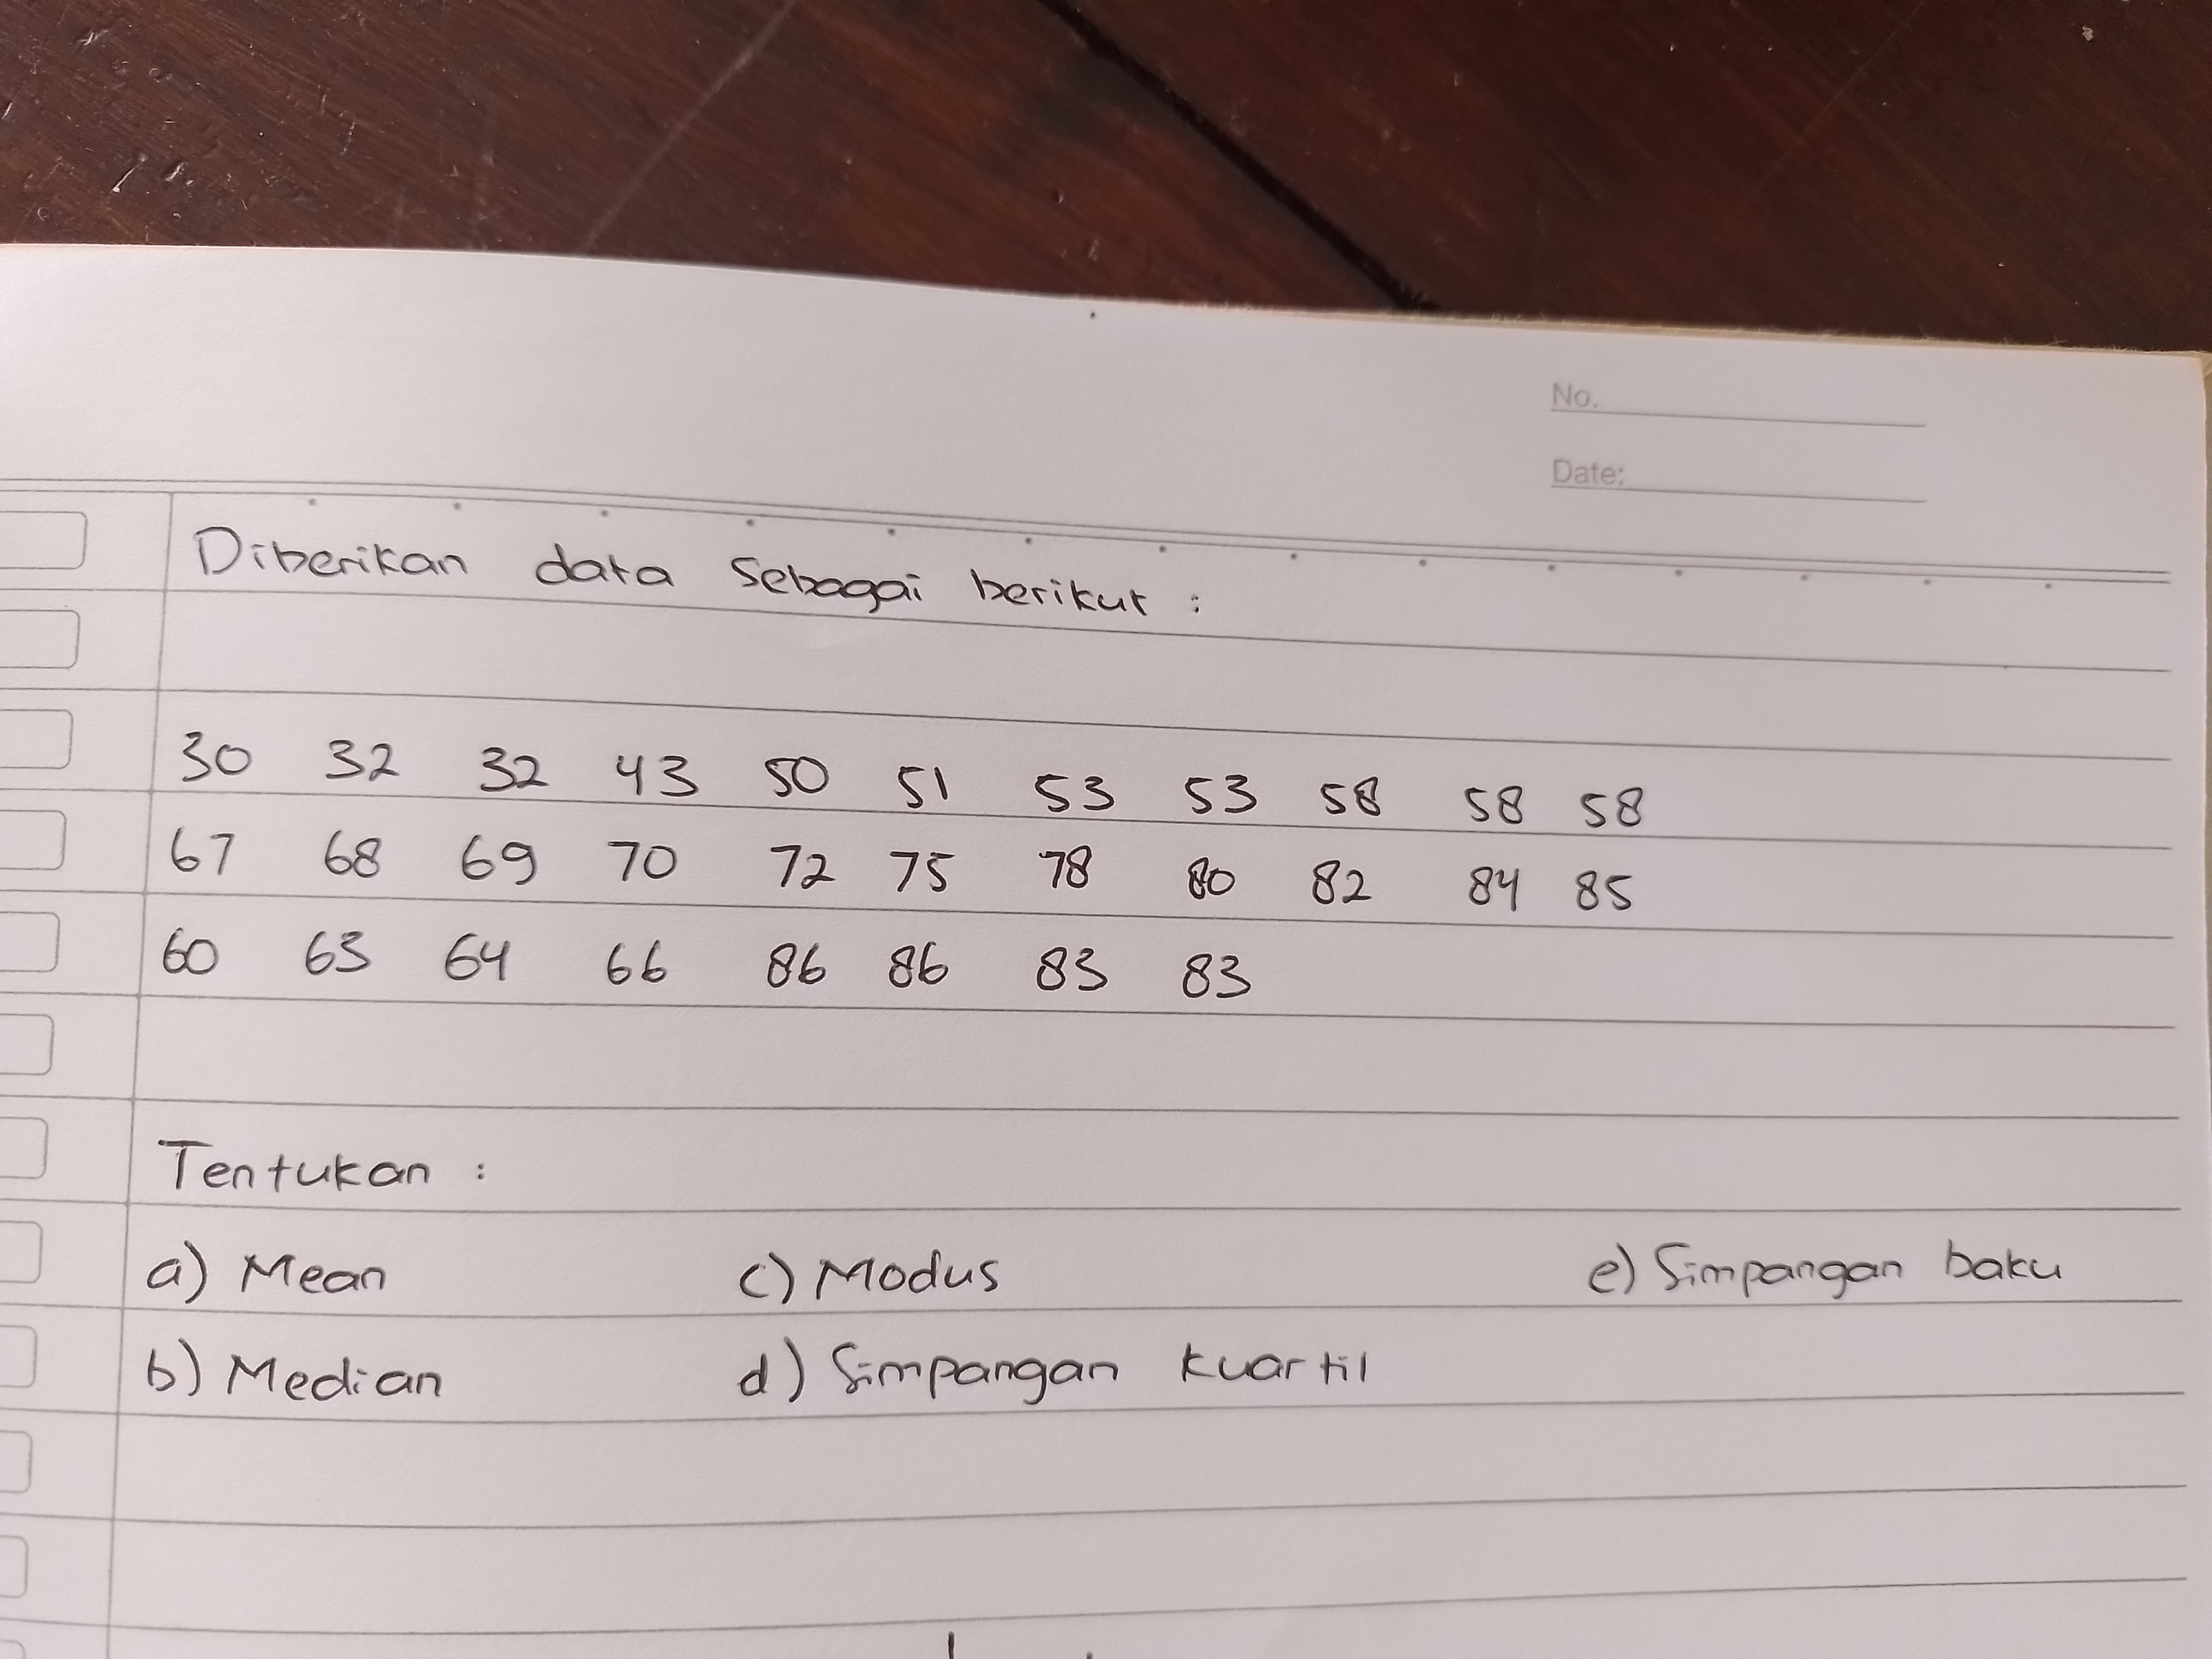 No.
Date:
Diberikan data sebagai berikut :
30 32 32 43 50 51 53 53 58 58 58
67 68 69 70 72 75 78 80 82 84 85
60 63 64 66 86 86 83 83
Tentukan :
a) Mean c) Modus e) Simpangan baku
b) Median d) Simpangan kuartil